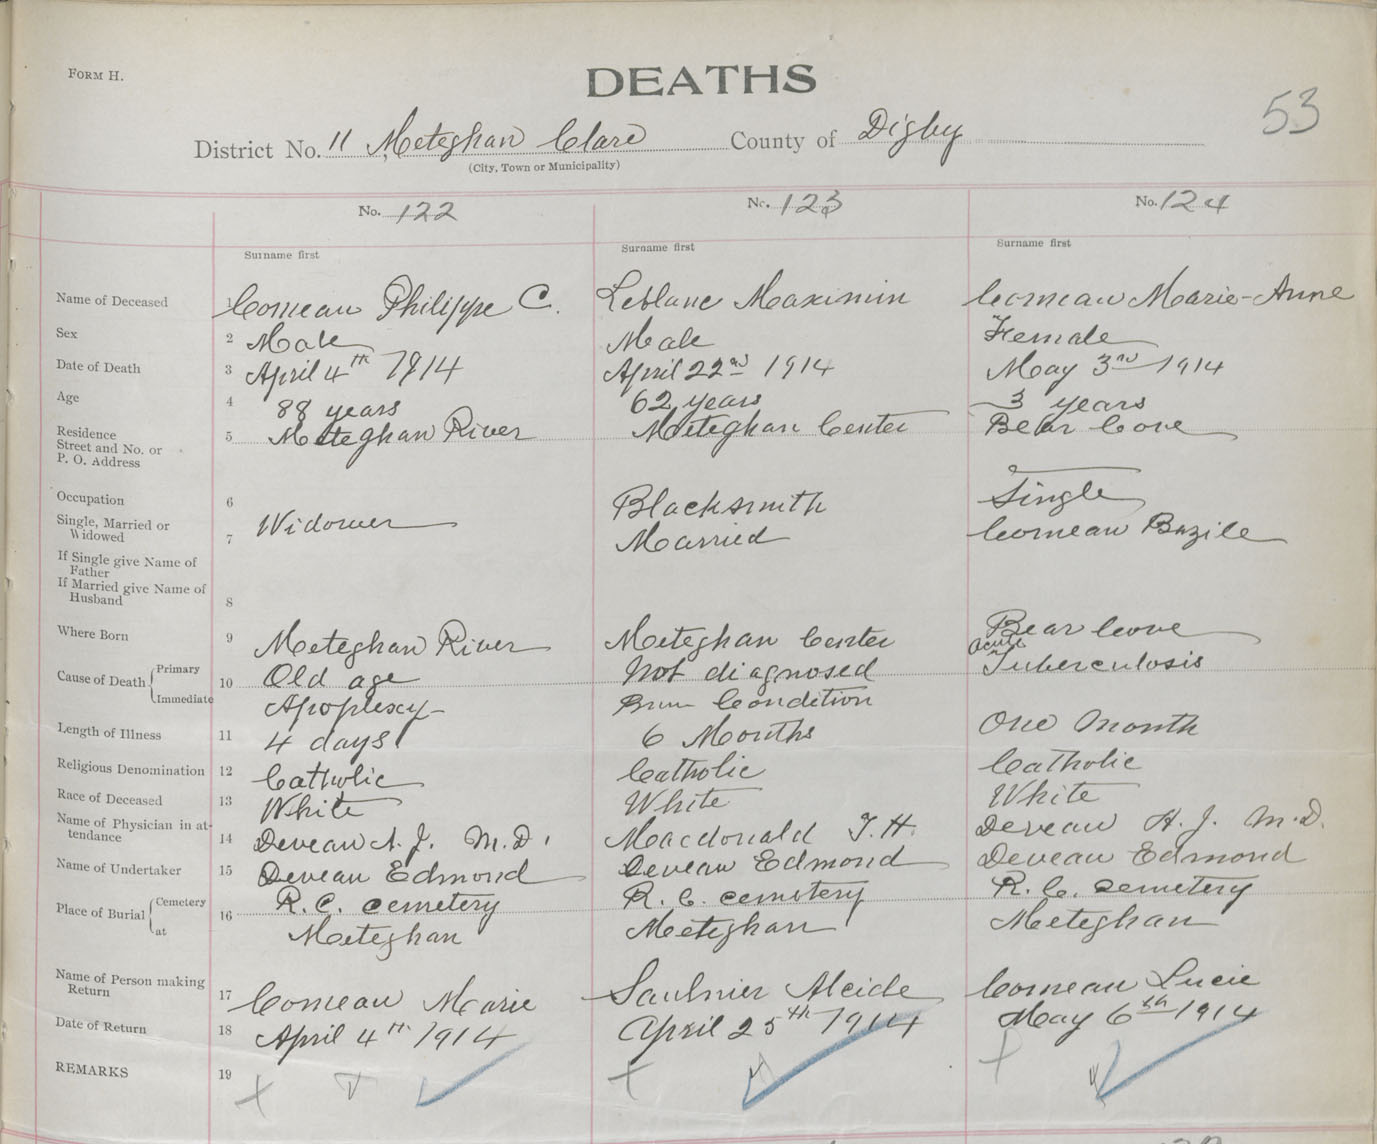 FORM H.
DEATHS
53
District No. 11 Meteghan Clare County of Digby
(City, Town or Municipality)
No. 122 No. 123 No. 124
Surname first Surname first Surname first
Name of Deceased 1 Comeau Philippe C. Leblanc Maximin Comeau Marie-Anne
Sex 2 Male Male Female
Date of Death 3 April 4th 1914 April 22nd 1914 May 3rd 1914
Age 4 88 years 62 years 3 years
Residence
Street and No. or
P. O. Address 5 Meteghan River Meteghan Center Bear Cove
Occupation 6 Blacksmith Single
Single, Married or
Widowed 7 Widower Married Comeau Bazile
If Single give Name of
Father
If Married give Name of
Husband 8
Where Born 9 Meteghan River Meteghan Center Bear Cove
Cause of Death Primary 10 Old age Not diagnosed acute Tuberculosis
Immediate Apoplexy Condition
Length of Illness 11 4 days 6 Months One month
Religious Denomination 12 Catholic Catholic Catholic
Race of Deceased 13 White White White
Name of Physician in at-
tendance 14 Deveau A. J. M.D. Macdonald T. H. Deveau A. J. M.D.
Name of Undertaker 15 Deveau Edmond Deveau Edmond Deveau Edmond
Place of Burial Cemetery 16 R. C. cemetery R. C. cemetery R. C. cemetery
at Meteghan Meteghan Meteghan
Name of Person making
Return 17 Comeau Marie Saulnier Alcide Comeau Lucie
Date of Return 18 April 4th 1914 April 25th 1914 May 6th 1914
REMARKS 19